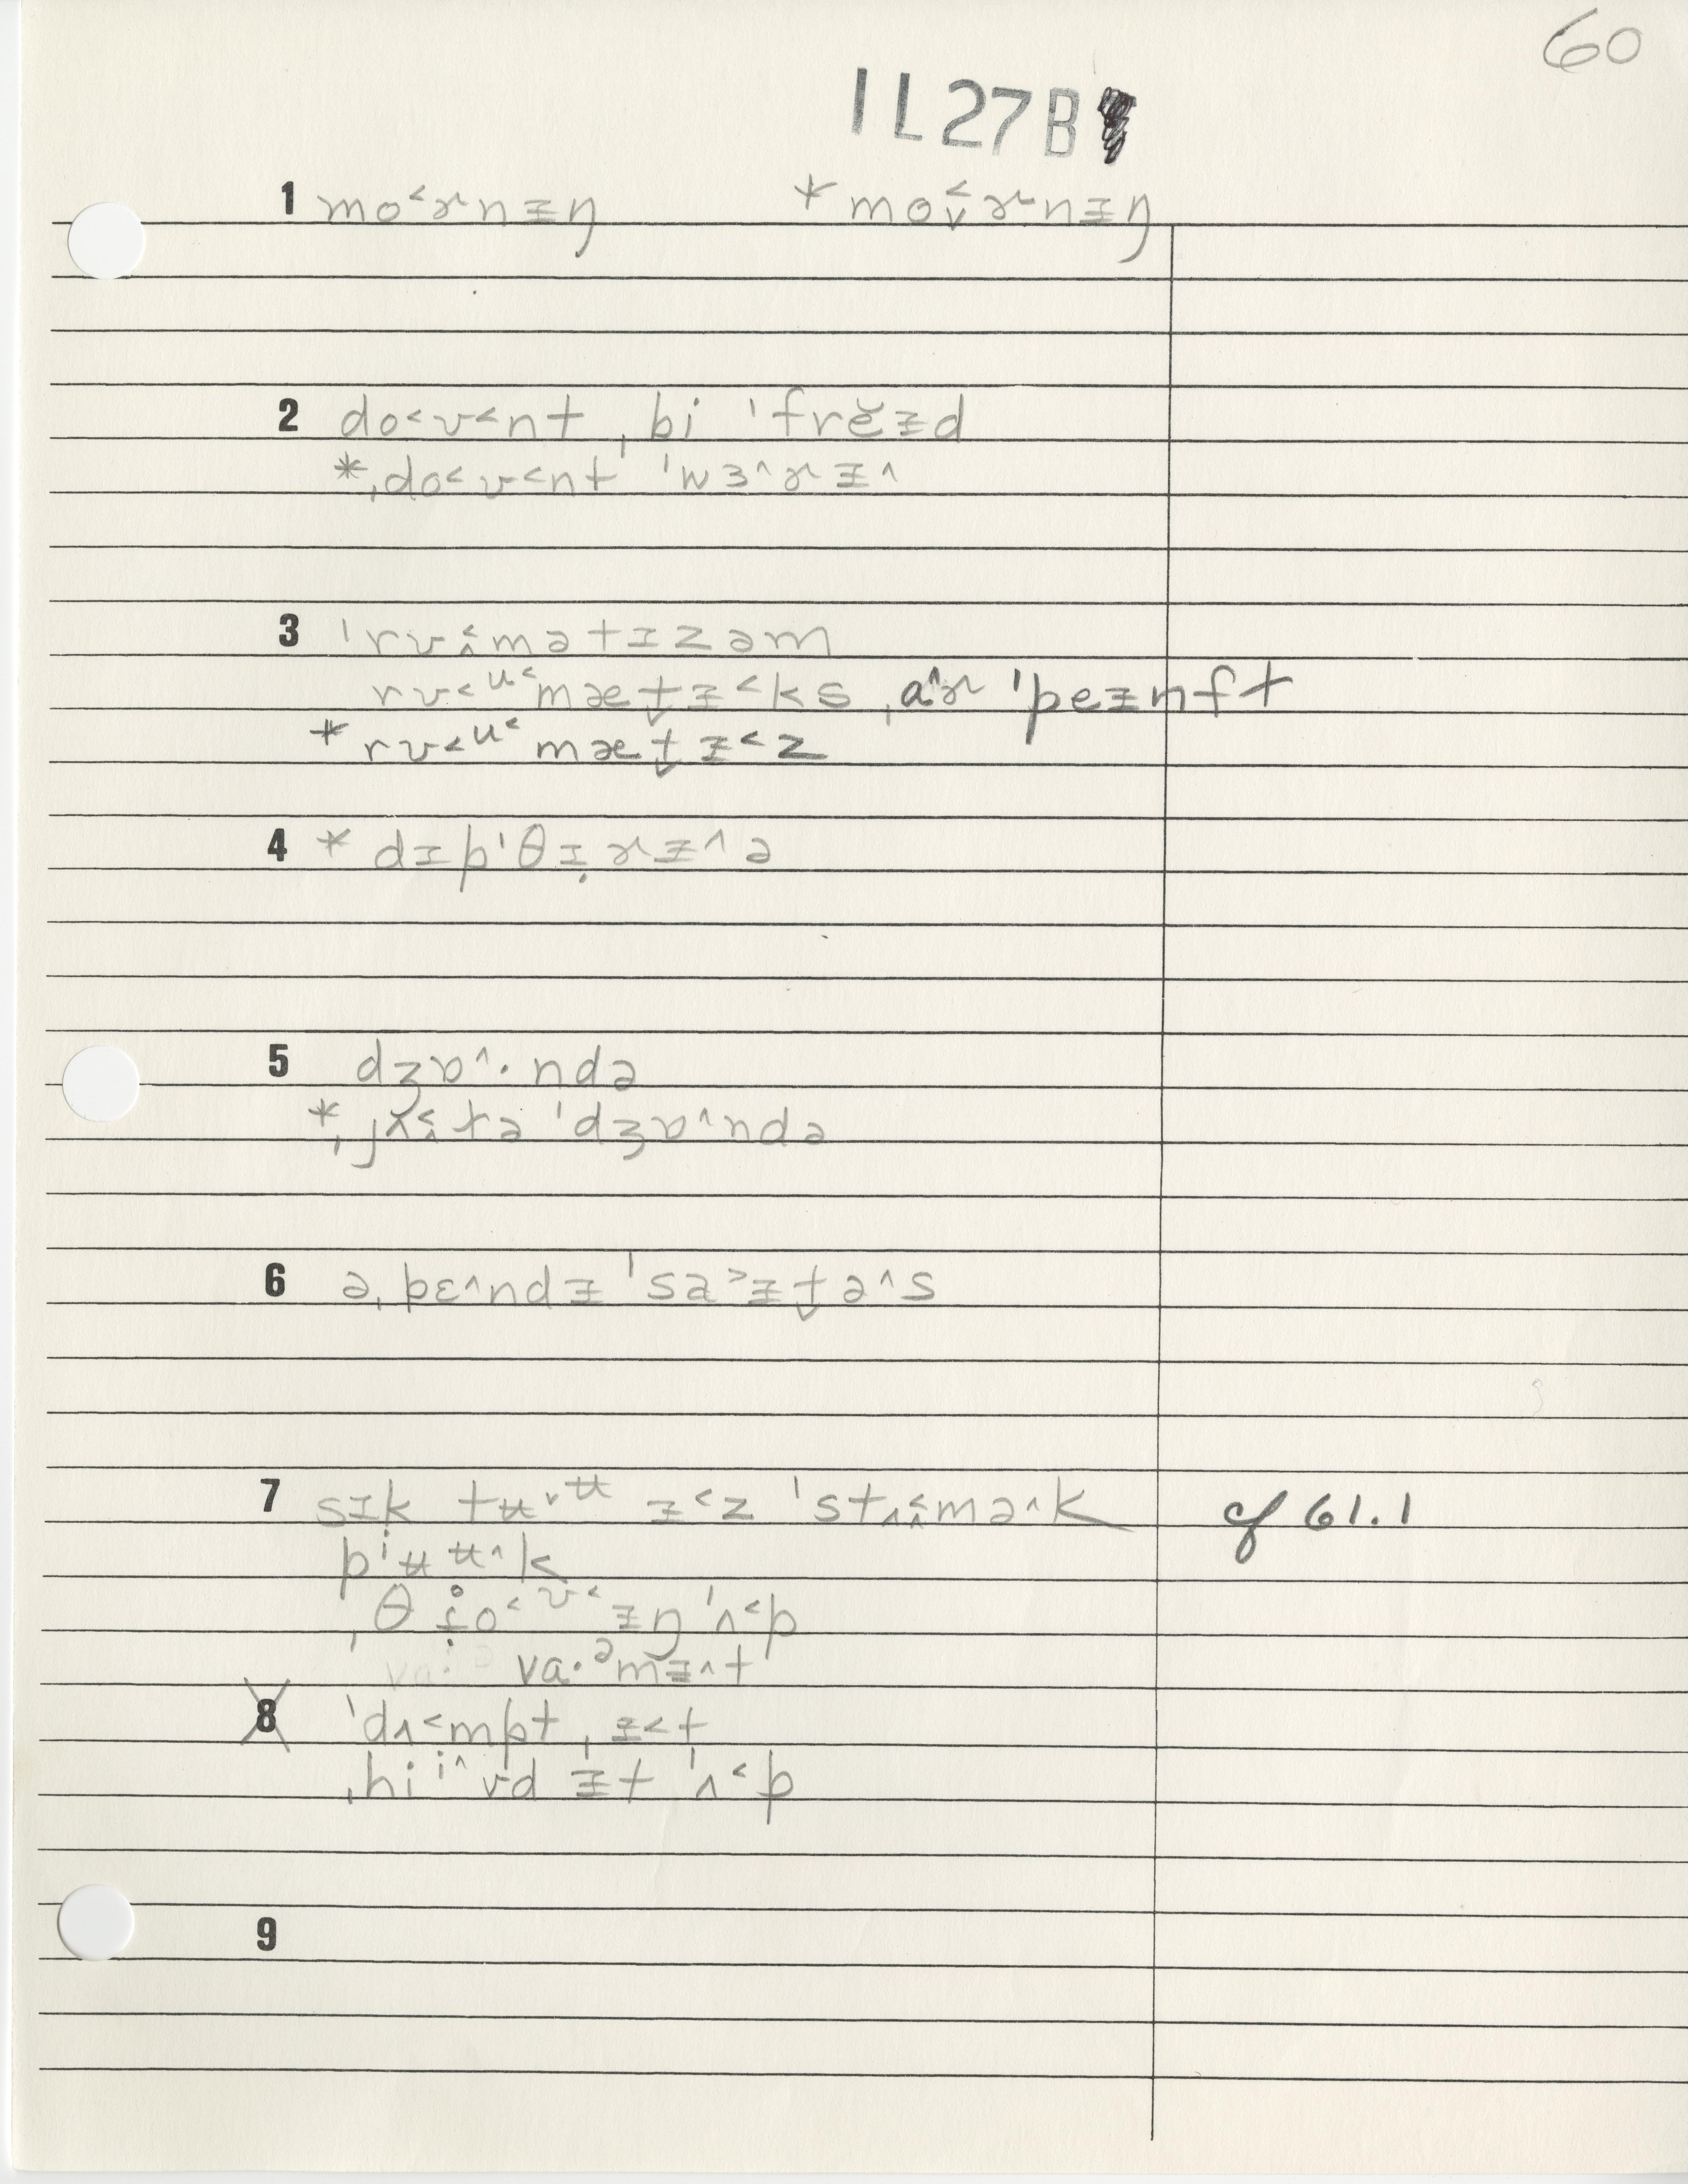 60
1L27B
1 mo˂ɚnᵻŋ *mo˂̬ɚnᵻŋ
2 do˂ʊ˂nt ˌbi ˈfrĕᵻd
*ˌdo˂ʊ˂nt ˈwɜ˄ɚᵻ˄
3 ˈrʊ˂̭mətɪzəm
rʊ˂ᵘ˂mæt̬ᵻ˂ks ˌa˄ɚ ˈpeᵻnft
*rʊ˂ᵘ˂mæt̬ᵻ˂z
4 *dɪpˈθɪ̣ɚᵻ˄ə
5 dʒɒ˄·ndə
*ˌjɤ˂̭lə ˈdʒɒ˄ndə
6 əˌpɛ˄ndᵻˈsa˃ᵻt̬ə˄s
7 sɪk tʉ˅ᶶ ᵻ˂z ˈstʌ˂̭mə˄k cf 61.1
pʲʉᶶ˄k
ˌθɹ̣o˂ᶷ˂ᵻŋ ˈʌ˂p
va·ᵊmᵻ˄t
8 ˈdʌ˂mpt ˌᵻ˂t
ˌhiⁱ˄vd ᵻt ˈʌ˂p
9